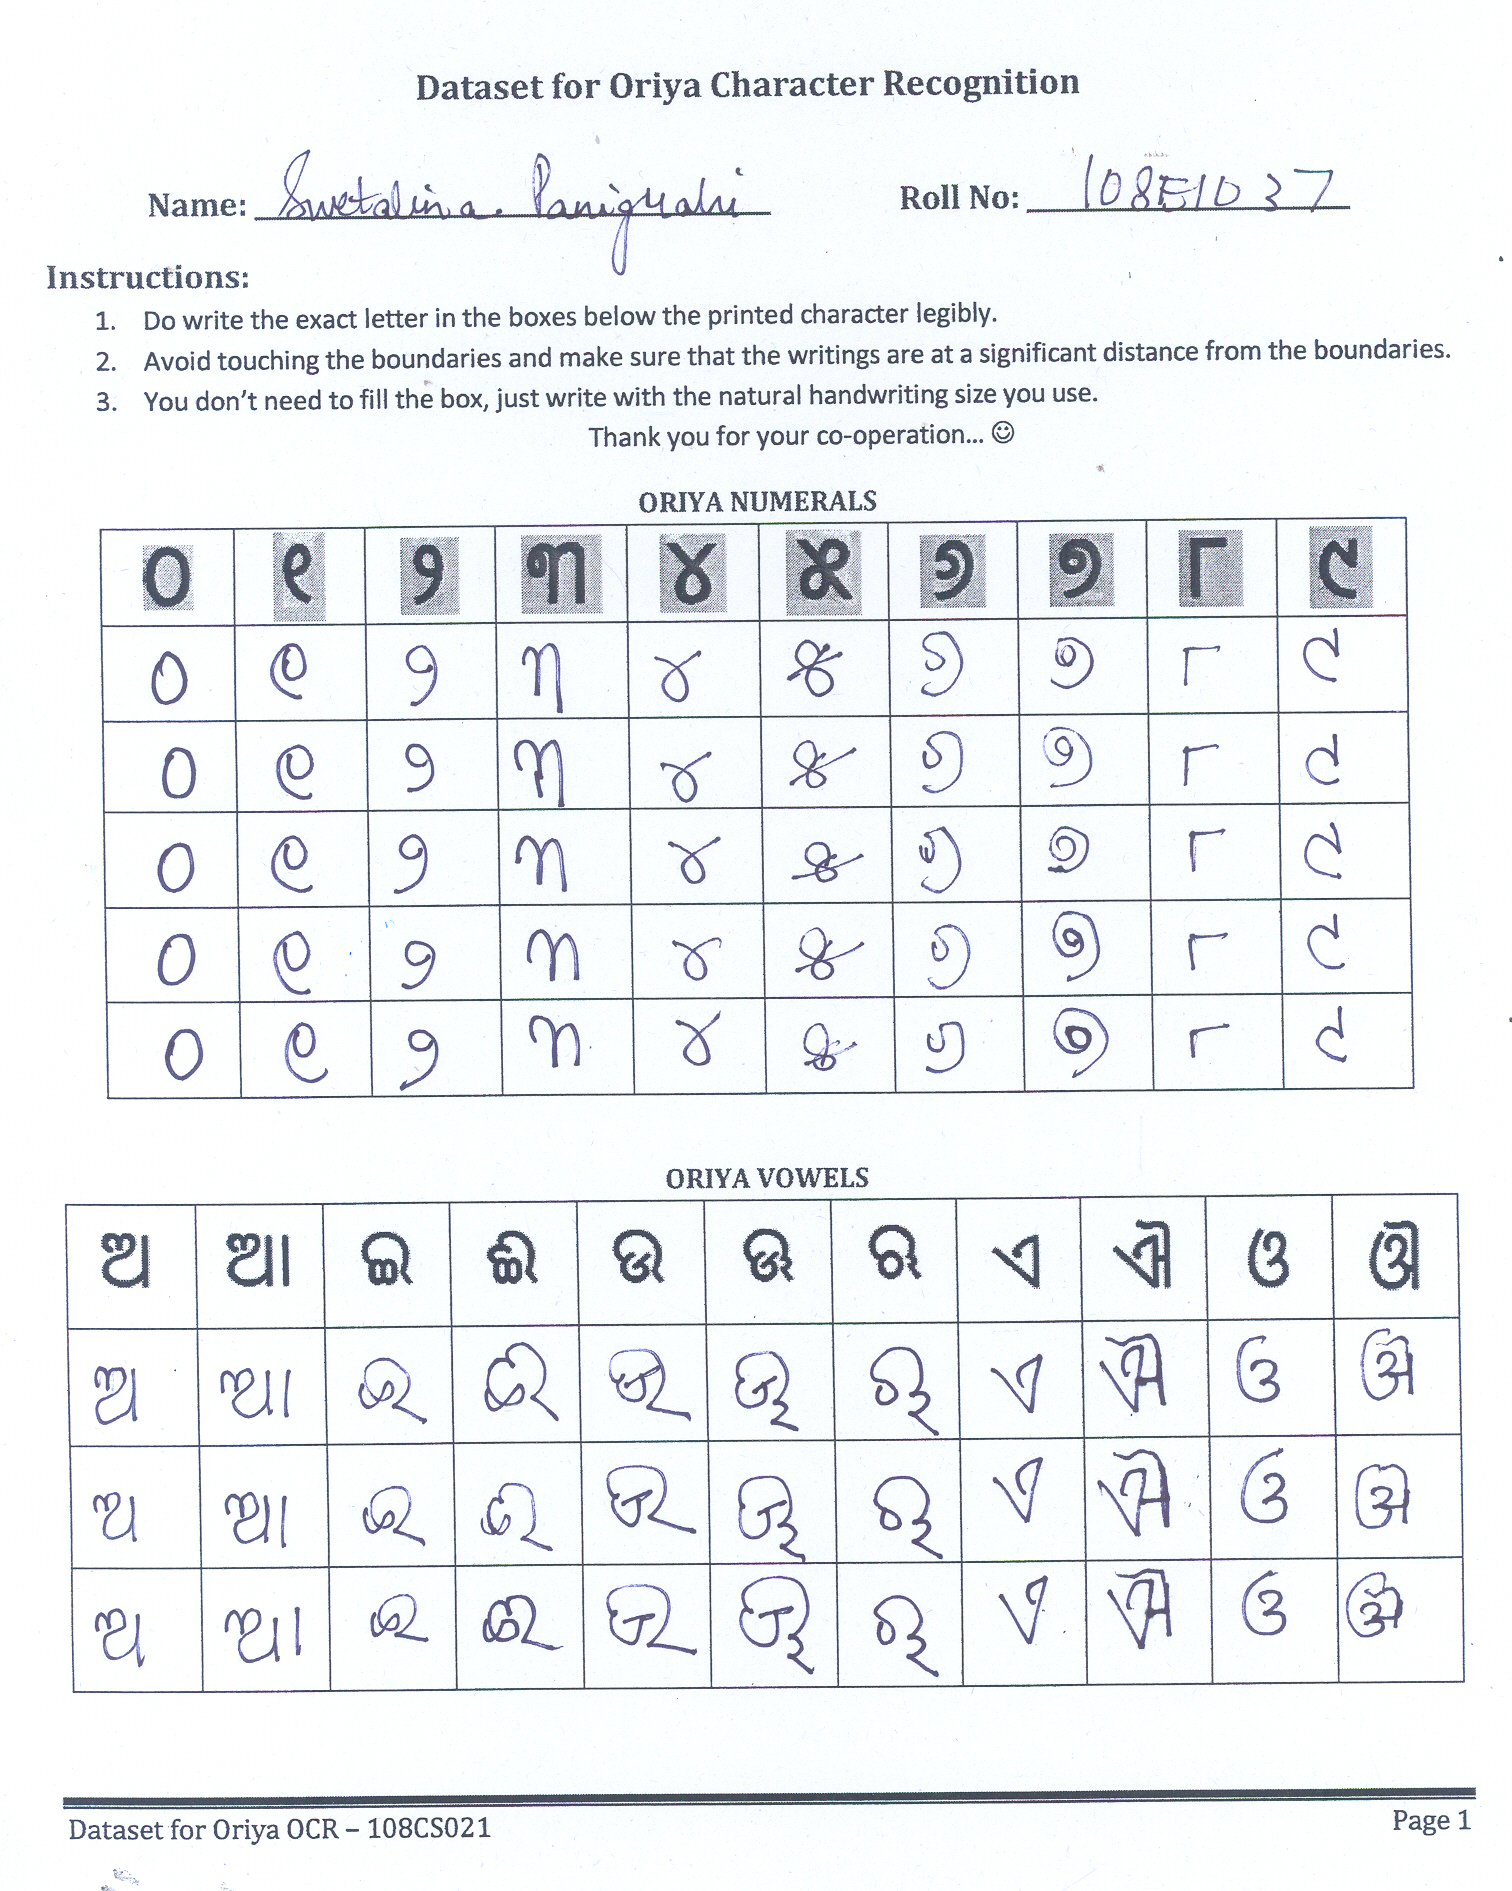 Dataset for Oriya Character Recognition
Name: Swetalina. Panigrahi Roll No: 108EI037
Instructions:
1. Do write the exact letter in the boxes below the printed character legibly.
2. Avoid touching the boundaries and make sure that the writings are at a significant distance from the boundaries.
3. You don't need to fill the box, just write with the natural handwriting size you use.
Thank you for your co-operation... ☺
ORIYA NUMERALS
୦ ୧ ୨ ୩ ୪ ୫ ୬ ୭ ୮ ୯
୦ ୧ ୨ ୩ ୪ ୫ ୬ ୭ ୮ ୯
୦ ୧ ୨ ୩ ୪ ୫ ୬ ୭ ୮ ୯
୦ ୧ ୨ ୩ ୪ ୫ ୬ ୭ ୮ ୯
୦ ୧ ୨ ୩ ୪ ୫ ୬ ୭ ୮ ୯
୦ ୧ ୨ ୩ ୪ ୫ ୬ ୭ ୮ ୯
ORIYA VOWELS
ଅ ଆ ଇ ଈ ଉ ଊ ଋ ଏ ଐ ଓ ଔ
ଅ ଆ ଇ ଈ ଉ ଊ ଋ ଏ ଐ ଓ ଔ
ଅ ଆ ଇ ଈ ଉ ଊ ଋ ଏ ଐ ଓ ଔ
ଅ ଆ ଇ ଈ ଉ ଊ ଋ ଏ ଐ ଓ ଔ
Dataset for Oriya OCR – 108CS021 Page 1